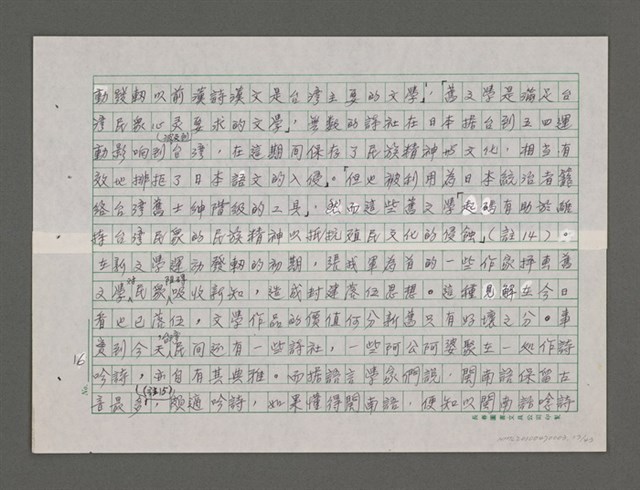 動發軔以前漢詩漢文是台灣主要的文學」,「舊文學是滿足台
灣民眾心灵要求的文學」,無數的詩社在日本據台到五四運
動影响到台灣,在這期間保存了民族精神與文化,相当有
效地排拒了日本語文的入侵」。「但也被利用為日本統治者籠
絡台灣舊士紳階級的工具」,然而這些舊文學「起碼有助於維
持台灣民眾的民族精神以抵抗殖民文化的侵蝕」(註14)。
在新文學運动發軔的初期,張我軍為首的一些作家抨擊舊
文學對民眾吸收新知,造成封建落伍思想。這種見解在今日
看也已落伍,文學作品的價值何分新舊只有好壞之分。事
實到今天民间还有一些詩社,一些阿公阿婆聚在一起作詩
16
吟詩,亦自有其典雅。而據語言學家們說,閩南語保留古
音最多(註15),頗適吟詩,如果懂得閩南語,便知以閩南語唸詩